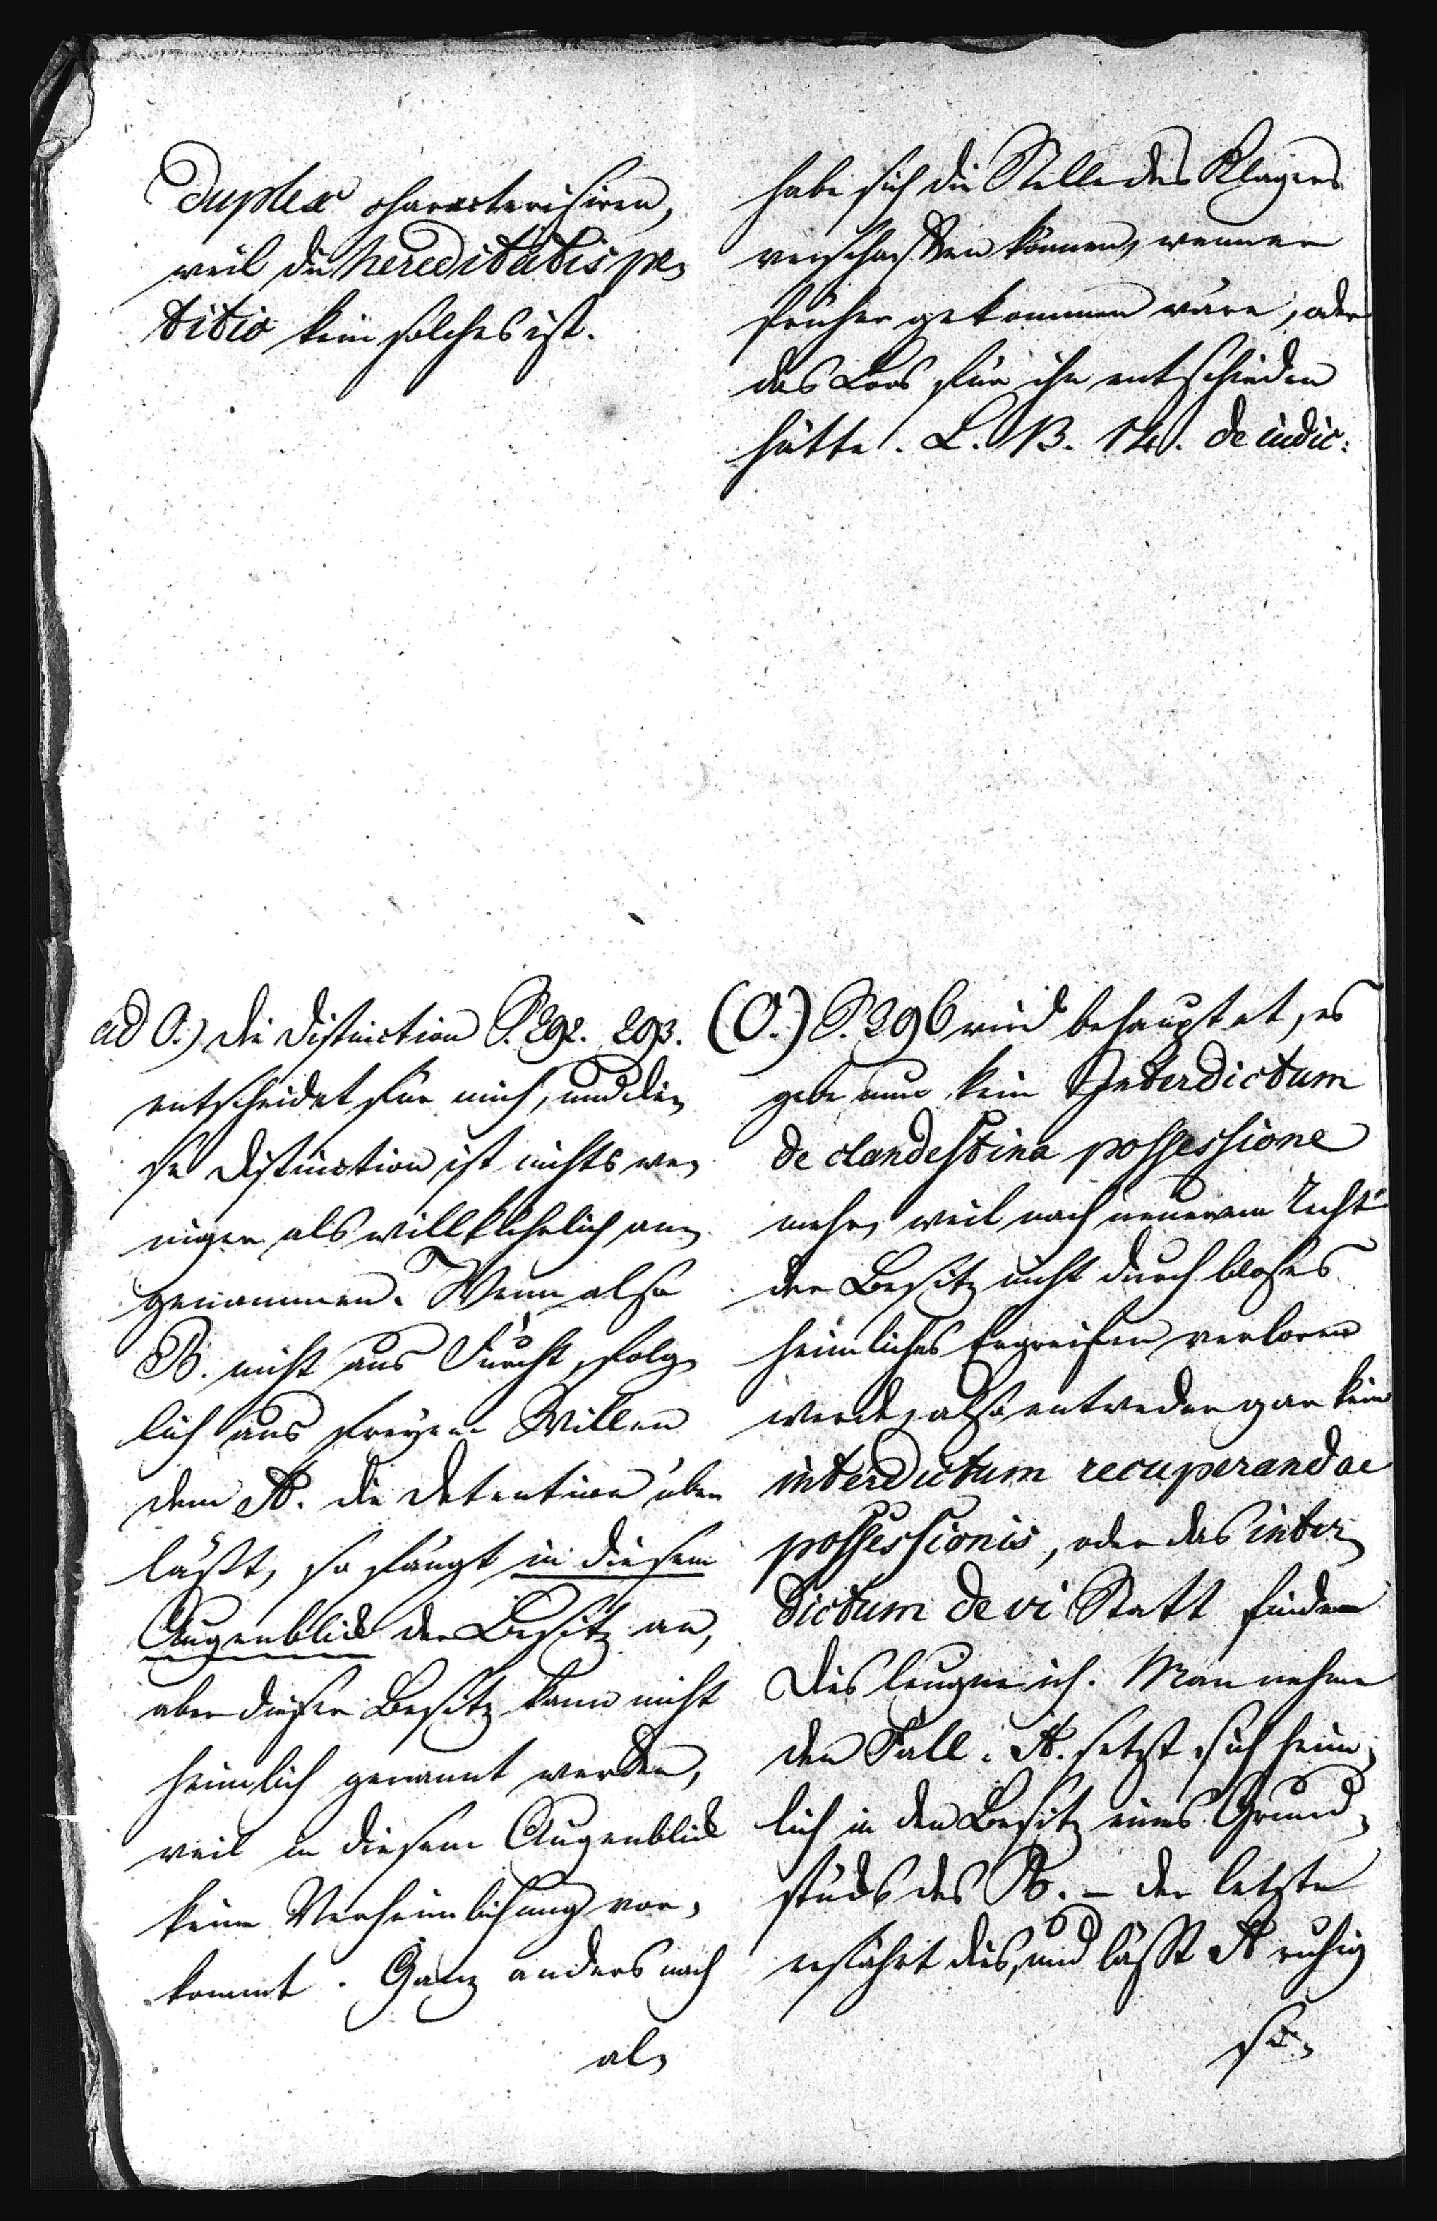 duplex characterisiren,
weil die hereditatis pe-
titio kein solches ist.
habe sich die Stelle des Klägers
verschaffen können, wenn er
früher gekommen wäre, oder
das Loos für ihn entschieden
hätte. L. 13. 14. de iudic:
ad O.) die Distinction S. 292. 293.
entscheidet für mich, und die-
se Distinction ist nichts we-
niger als willkührlich an-
genommen. Wenn also
B. nicht aus Furcht, folg-
lich aus freyem Willen
dem A. die Detention über
läßt, so fängt in diesem
Augenblick der Besitz an,
aber dieser Besitz kann nicht
heimlich genannt werden,
weil in diesem Augenblick
keine Verheimlichung vor-
kommt. Ganz anders nach
al-
(O.) S. 296 wird behauptet, es
gebe nun kein Interdictum
de clandestina possessione
mehr, weil nach neuerem Recht
der Besitz nicht durch bloßes
heimliches Ergreifen verloren
werde, also entweder gar kein
interdictum recuperandae
possessionis, oder das inter-
dictum de vi Statt finden
Dies leugne ich. Man nehme
den Fall: A. setzt sich heim-
lich in den Besitz eines Grund-
stücks des B. – der letzte
erfährt dies, und läßt A ruhig